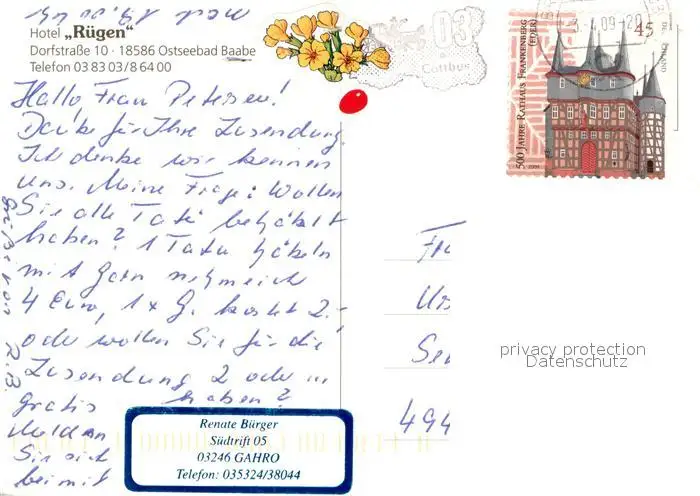 Hotel „Rügen"
Dorfstraße 10 · 18586 Ostseebad Baabe
Telefon 03 83 03/8 64 00
Hallo, Frau Petersen!
Danke für Ihre Zusendung.
Ich denke wir kennen
uns. Meine Frage: Wollen
Sie alle
haben? 1
mit Garn
4 Euro, 1x G. kostet 2.-
oder wollen Sie für die
Zusendung 2 oder
gratis haben?
Melden
Sie sich
bei mir
Grüße von
R.B.
03
Cottbus
45
500 JAHRE RATHAUS FRANKENBERG
(EDER)
Fra
Se
494
privacy protection
Datenschutz
Renate Bürger
Südtrift 05
03246 GAHRO
Telefon: 035324/38044